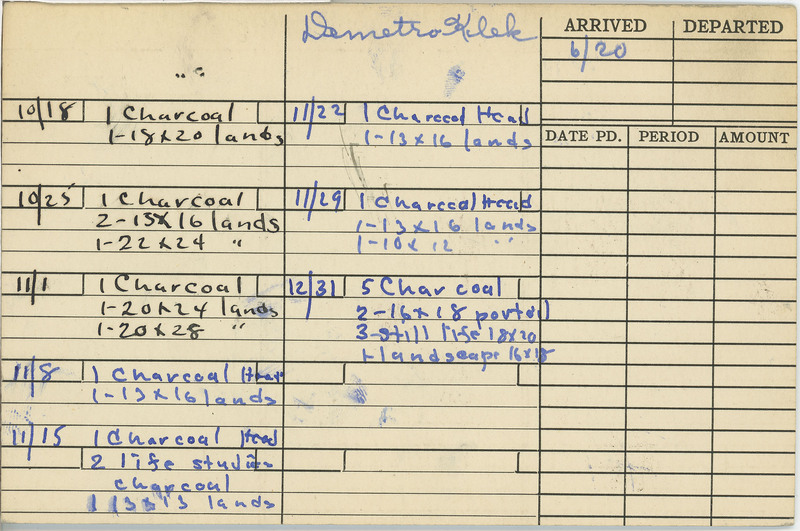 Demetro Klek
ARRIVED DEPARTED
6/20
DATE PD. PERIOD AMOUNT
10/18 1 Charcoal
1-18x20 lands
10/25 1 Charcoal
2-13x16 lands
1-22x24 "
11/1 1 Charcoal
1-20x24 lands
1-20x28 "
11/8 1 Charcoal Head
1-13x16 lands
11/15 1 Charcoal Head
2 life studies
charcoal
1 13x13 lands
11/22 1 Charcoal Head
1-13x16 lands
11/29 1 Charcoal Head
1-13x16 lands
1-10x12 "
12/31 5 Charcoal
2-16x18
3-still life 18x20
1-landscape 16x18